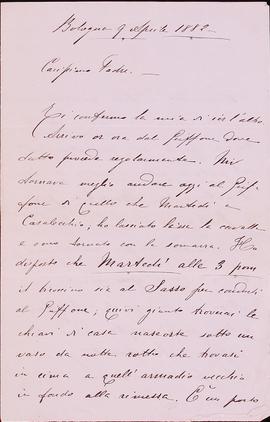 Bologna 9 Aprile 1882
Carissimo Padre. —
Ti confermo la mia di ier l'altro
Arrivo or ora dal Puffone dove
tutto procede regolarmente. Mi
tornava meglio andare oggi al Puf-
fone di quello che Martedì a
Casalecchio, ho lasciato le cavalle
e sono tornato con la somarra. Ho
disposto che Martedì alle 3 pom
il broccino sia al Sasso per condurti
al Puffone, quivi giunto troverai le
chiavi di casa nascoste sotto un
vaso da notte rotto che trovasi
in cima a quell'armadio vecchio
in fondo alla rimessa. È un posto